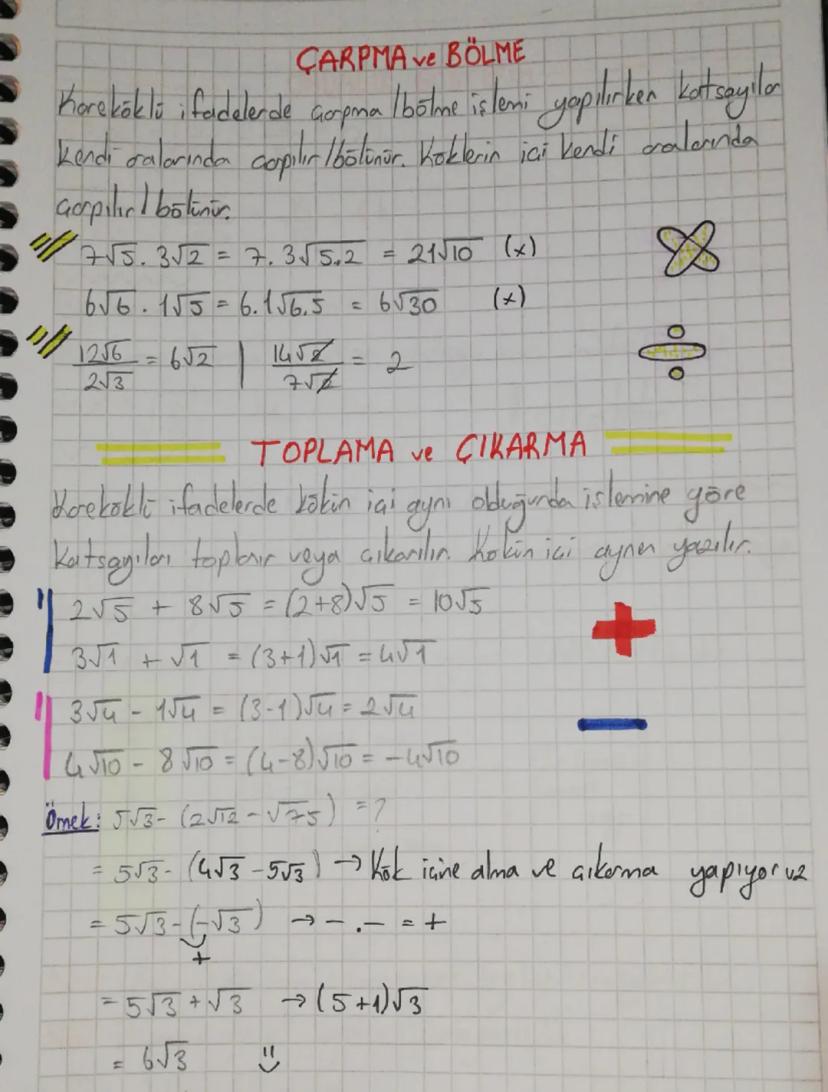 ÇARPMA ve BÖLME
Kareköklü ifadelerde çarpma / bölme işlemi yapılırken katsayılar
kendi aralarında çarpılır / bölünür. Köklerin içi kendi aralarında
çarpılır / bölünür.
7√5 . 3√2 = 7.3√5.2 = 21√10 (x)
6√6 . 1√5 = 6.1√6.5 = 6√30 (x)
12√6 / 2√3 = 6√2 | 14√2 / 7√2 = 2
TOPLAMA ve ÇIKARMA
Kareköklü ifadelerde kökün içi aynı olduğunda işlemine göre
katsayıları toplanır veya çıkarılır. Kökün içi aynen yazılır.
2√5 + 8√5 = (2+8)√5 = 10√5
3√1 + √1 = (3+1)√1 = 4√1
+
3√4 - 1√4 = (3-1)√4 = 2√4
−
4√10 - 8√10 = (4-8)√10 = -4√10
Örnek: 5√3 - (2√12 - √75) = ?
= 5√3 - (4√3 - 5√3) → Kök içine alma ve çıkarma yapıyoruz
= 5√3 - (-√3) → - . - = +
+
= 5√3 + √3 → (5+1)√3
= 6√3